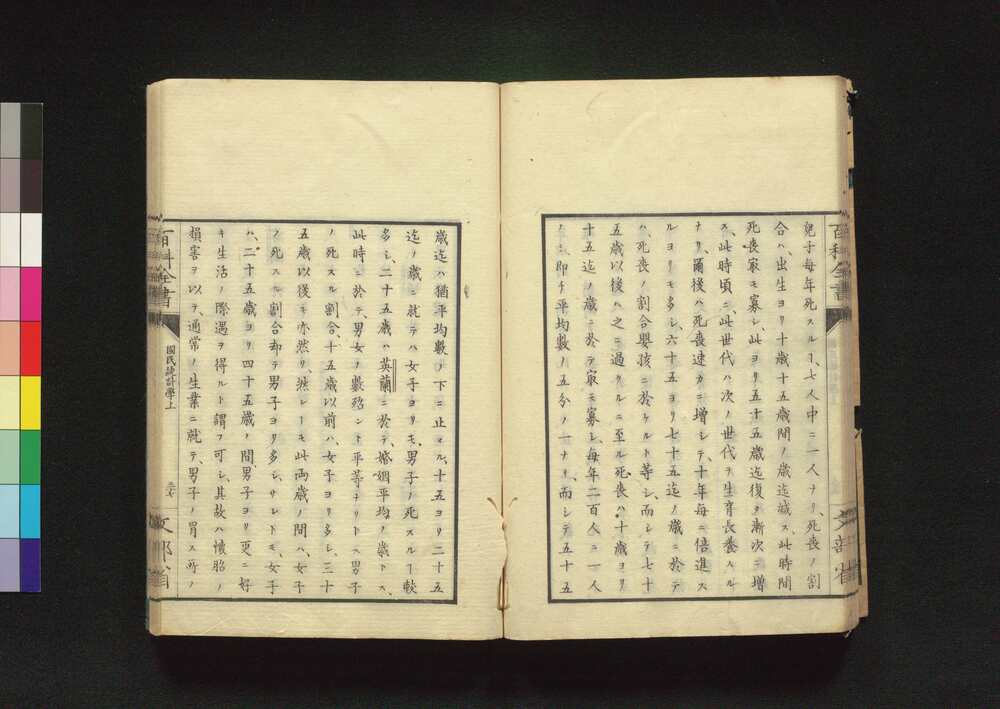 百科全書
兒子毎年死スルヿ、七人中ニ一人ナリ、死喪ノ割
合ハ、出生ヨリ十歳十五歳間ノ歳迄減ス、此時間
死喪㝡モ寡シ、此ヨリ五十五歳迄復タ漸次ニ増
ス、此時頃ニ、此世代ハ次ノ世代ヲ生育長養スル
ナリ、爾後ハ死喪速カニ増シテ、十年毎ニ倍進ス
ルヨリモ多シ、六十五ヨリ七十五迄ノ歳ニ於テ
ハ、死喪ノ割合嬰孩ニ於ケルト等シ、而シテ七十
五歳以後ハ之ニ過クルニ至ル、死喪ハ十歳ヨリ
十五迄ノ歳ニ於テ㝡モ寡シ、毎年二百人ニ一人
即チ平均數ノ五分ノ一ナリ、而シテ五十五
文部省
歳迄ハ猶平均數ノ下ニ止マル、十五ヨリ二十五
迄ノ歳ニ就テハ女子ヨリモ、男子ノ死スルヿ較
多シ、二十五歳ハ英蘭ニ於テ、婚姻平均ノ歳トス、
此時ニ於テ、男女ノ數殆ント平等ナリトス男子
ノ死スル割合、十五歳以前ハ、女子ヨリ多シ、三十
五歳以後モ亦然リ、然レトモ此両歳ノ間ハ、女子
ノ死スル割合却テ男子ヨリ多シ、サレトモ、女子
ハ、二十五歳ヨリ四十五歳ノ間、男子ヨリ更ニ好
キ生活ノ際遇ヲ得ルト謂フ可シ、其故ハ懐胎ノ
損害ヲ以テ、通常ノ生業ニ就テ、男子ノ冐ス所ノ
百科全書
國民統計學上
文部省